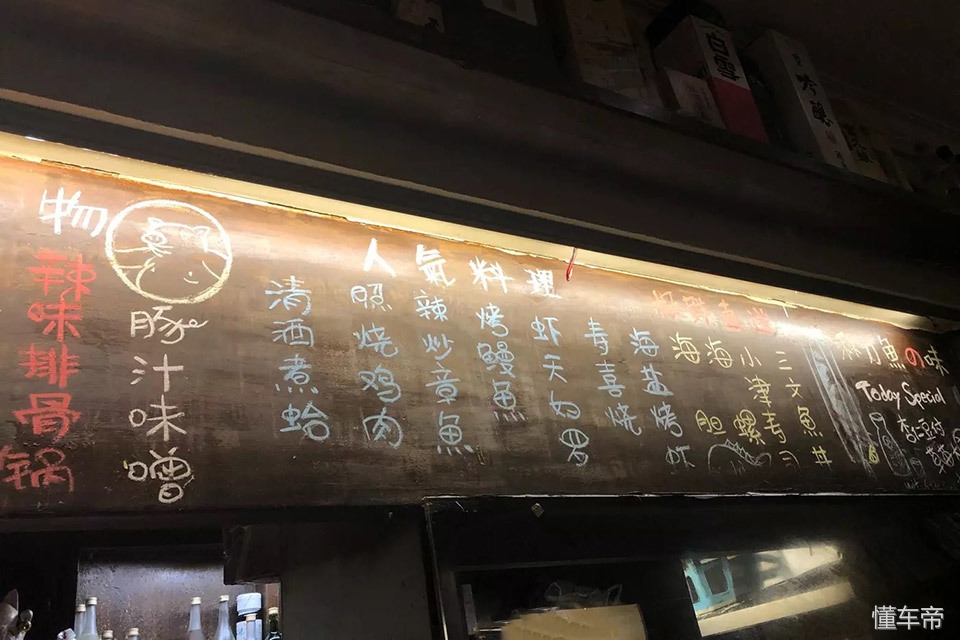 物
辣味排骨锅
豚汁味噌
人氣料理
清酒煮蛤
照烧鸡肉
辣炒章魚
烤鰻魚
虾天妇罗
寿喜烧
海盐烤虾
海胆
小海螺寿司
三文魚丼
魚の味
Today Special
白雪
吟醸
懂车帝